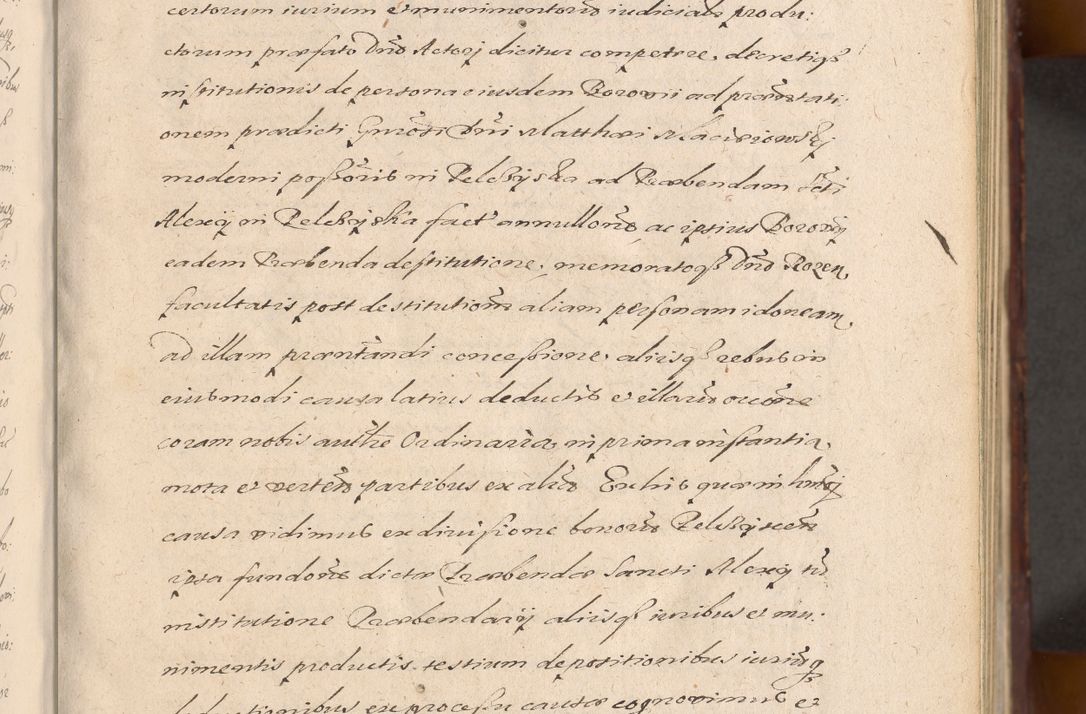 certorum iurium et munimentorũ iudicialr produ:
ctorum præfato Dño Actori dicitur competere, decretiqȝ
institutionis de persona eiusdem Borovii ad præsentati:
onem prædicti Gnrosi Dñi Matthæi Maciejowskj
moderni possoris in Pelczyska ad Præbendam Scti
Alexij in Pelczyska fact annullone, ac ipsius Borovij
eadem Præbenda destitutione, memoratoqȝ Dño
facultatis post destitutione aliam personam idoneam,
ad illam præntandi concessione, aliisqȝ rebus in
eiusmodi causa latius deductis et illarũ occõne
coram nobis authte Ordinaria, in prima instantia,
mota et verten partibus ex aliis Ex his quæ in hmõi
causa vidimus ex divisione bonorũ Pelczyscen
ipsa fundone dictæ Præbendæ Sancti Alexij
institutione Præbendarij aliisqȝ iuribus et mu:
nimentis productis testium depositionibus iuriũqȝ
ex processu causæ cognovimus et